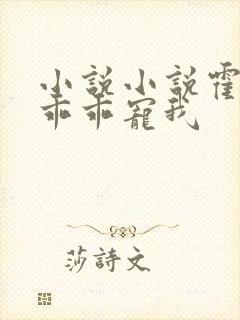 小説小説霍
乖乖寵我
莎詩文